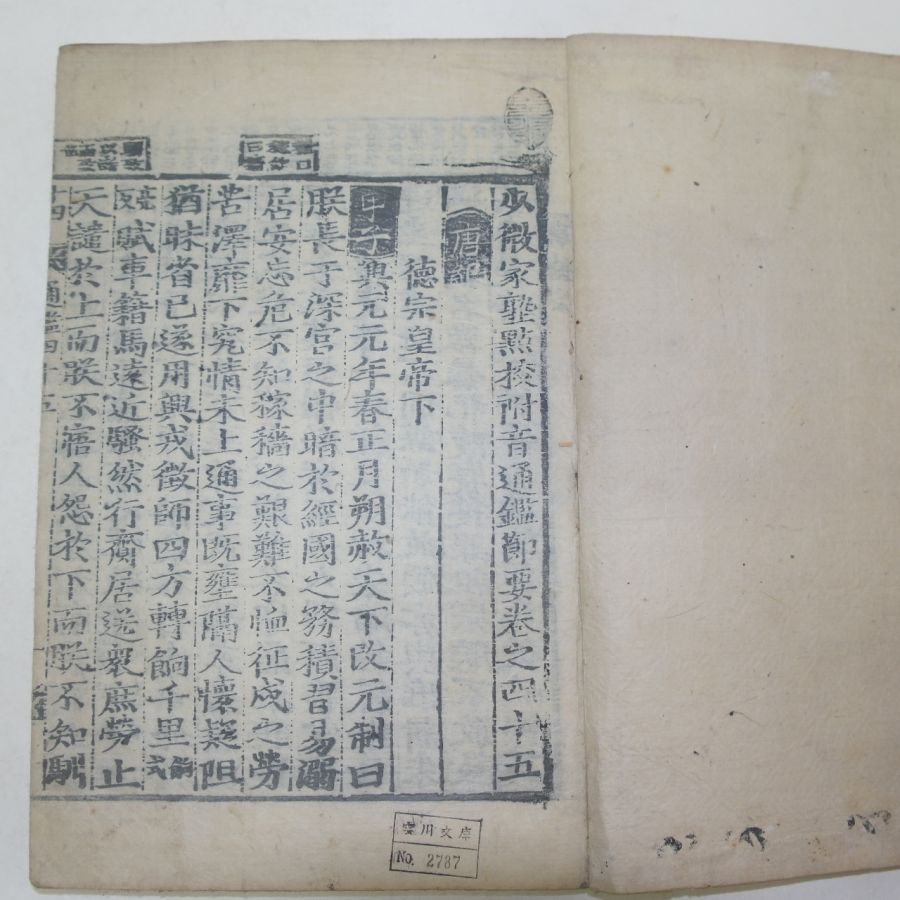 少微家塾點校附音通鑑節要卷之四十五
唐紀
德宗皇帝下
甲子興元元年春正月朔赦天下改元制曰
朕長于深宮之中暗於經國之務積習易溺
居安忘危不知稼穡之艱難不恤征戍之勞
苦澤靡下究情未上通事旣壅隔人懷疑阻
猶昧省己遂用興戎徵師四方轉餉千里餉式
亮反賦車籍馬遠近騷然行齎居送衆庶勞止
天譴於上而朕不寤人怨於下而朕不知馴
通鑑四十五
文庫
No. 2787